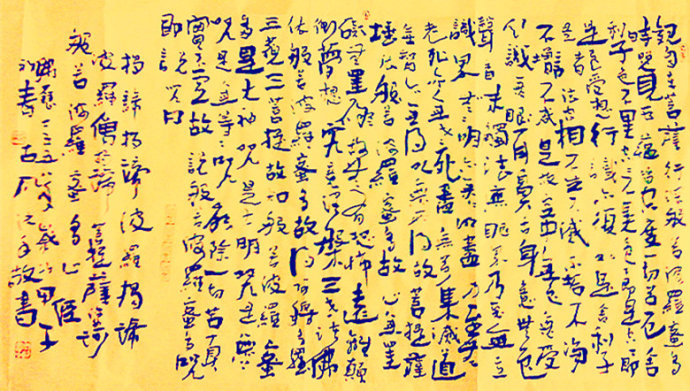 觀自在菩薩行深般若波羅蜜多
時照見五蘊皆空度一切苦厄舍
利子色不異空空不異色色即是空空即
是色受想行識亦復如是舍利子
是諸法空相不生不滅不垢不淨
不增不減是故空中無色無受
想行識無眼耳鼻舌身意無色
聲香味觸法無眼界乃至無意
識界無無明亦無無明盡乃至無
老死亦無老死盡無苦集滅道
無智亦無得以無所得故菩提薩
埵依般若波羅蜜多故心無罣
礙無罣礙故無有恐怖遠離顛
倒夢想究竟涅槃三世諸佛
依般若波羅蜜多故得阿耨多羅
三藐三菩提故知般若波羅蜜
多是大神咒是大明咒是無
上咒是無等等咒能除一切苦真
實不虛故說般若波羅蜜多咒
即說咒曰
揭諦揭諦波羅揭諦
波羅僧揭諦菩提薩婆訶
般若波羅蜜多心經
甲子
敬書